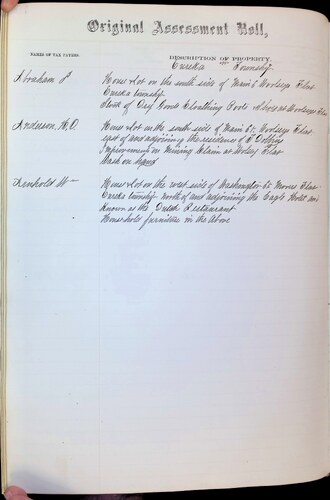 Original Assessment Roll,
NAMES OF TAX PAYERS.
DESCRIPTION OF PROPERTY.
Eureka Township
Abraham J House & Lot on the south side of Main St Woolseys Flat
Eureka township
Stock of Dry Goods Cloathing Boots & Shoes at Woolseys Flat
Anderson, House & Lot on the south side of Main St. Woolseys Flat
east of and adjoining the residence of
Improvement on Mining Claim at Wolsey Flat
Cash on hand
Arnhold Wm House & Lot on the west side of Washington St. Moores Flat
Eureka township north of and adjoining the Eagle Hotel and
Known as the Dutch Restaurant
Household furniture in the above